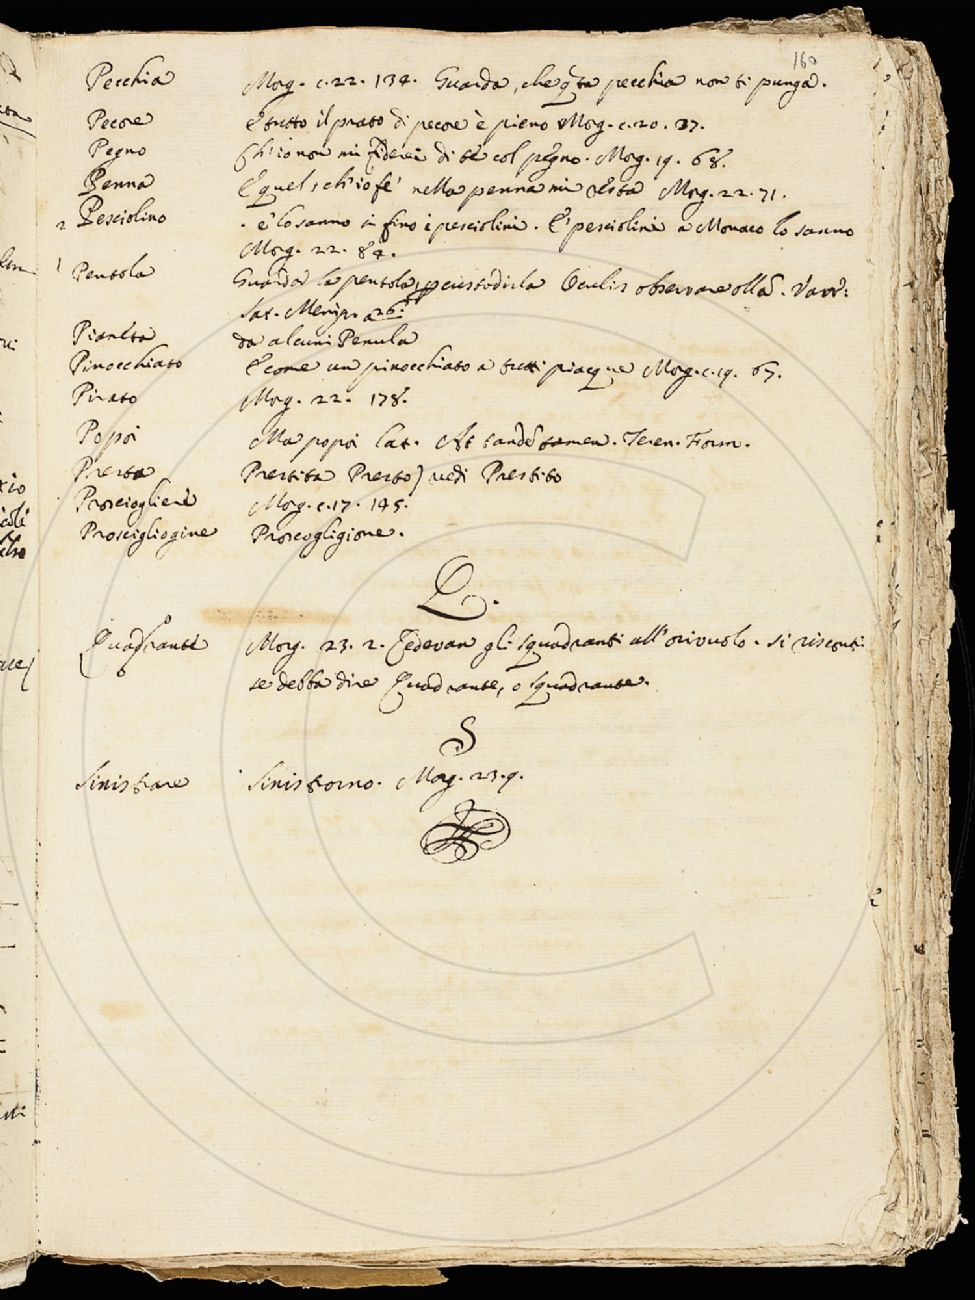 160
Pecchia Morg. c. 22. 134. Guarda, che q̃ta pecchia non ti punga.
Pecore E tutto il prato di pecore è pieno Morg. c. 20. 37.
Pegno Ch'io non mi fiderei di te col pegno. Morg. 19. 68.
Penna E quel, ch'io fe' nella penna mi resta Morg. 22. 71.
2 Pesciolino e' lo sanno in fino i pesciolini. E' pesciolini a Monaco lo sanno
Morg. 22. 84.
1 Pentola Guarda la pentola, custodirla Oculis observare ollã. Varr:
Sat. Menipp. 26.
Pianeta da alcuni Penula
Pinocchiato E come un pinocchiato a tutti piacque Morg. c. 19. 67.
Pirato Morg. 22. 178.
Popoi Ma popoi Lat. At tandẽ tamen. Teren. Form.
Presta Prestita Presto) vedi Prestito
Prosciogliere Morg. c. 17. 145.
Proscigliogine Proscogligione.
Q.
Quadrante Morg. 23. 2. Tedevan gli squadranti all'orivuolo. si riscontri
se debba dire Quadrante, o squadrante.
S
Sinistrare Sinistrorno. Morg. 23. 9.